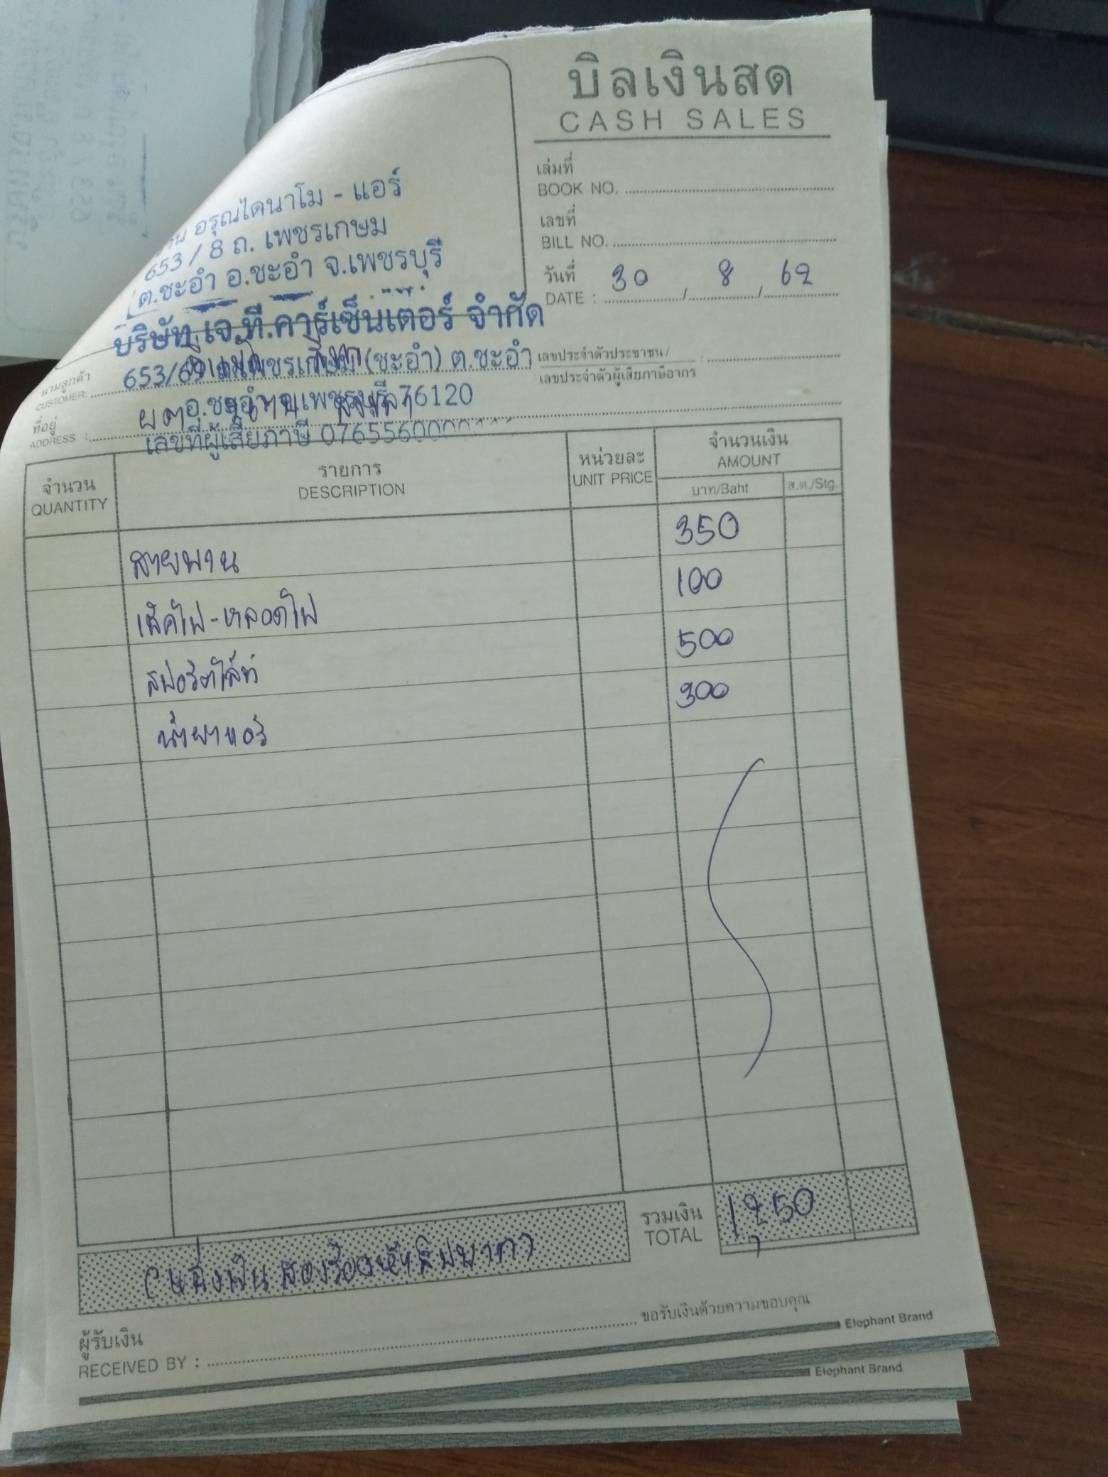 บิลเงินสด
CASH SALES
เล่มที่
BOOK NO.
เลขที่
BILL NO.
วันที่ 30 / 8 / 62
DATE :
อรุณไดนาโม - แอร์
653 / 8 ถ. เพชรเกษม
ต.ชะอำ อ.ชะอำ จ.เพชรบุรี
บริษัท เจ.ที.คาร์เซ็นเตอร์ จำกัด
(ชะอำ) ต.ชะอำ
เลขประจำตัวประชาชน/
เลขประจำตัวผู้เสียภาษีอากร
นามลูกค้า
CUSTOMER:
อ.ชะอำ จ.เพชรบุรี 76120
ที่อยู่
ADDRESS :
เลขที่ผู้เสียภาษี 0765560000
จำนวน
QUANTITY
รายการ
DESCRIPTION
หน่วยละ
UNIT PRICE
จำนวนเงิน
AMOUNT
บาท/Baht ส.ต./Stg.
สายพาน 350
เช็คไฟ-หลอดไฟ 100
สปอร์ตไล้ท์ 500
น้ำยาแอร์ 300
รวมเงิน
TOTAL
1,250
(หนึ่งพันสองร้อยห้าสิบบาท)
ผู้รับเงิน
RECEIVED BY :
ขอรับเงินด้วยความขอบคุณ
Elephant Brand
Elephant Brand